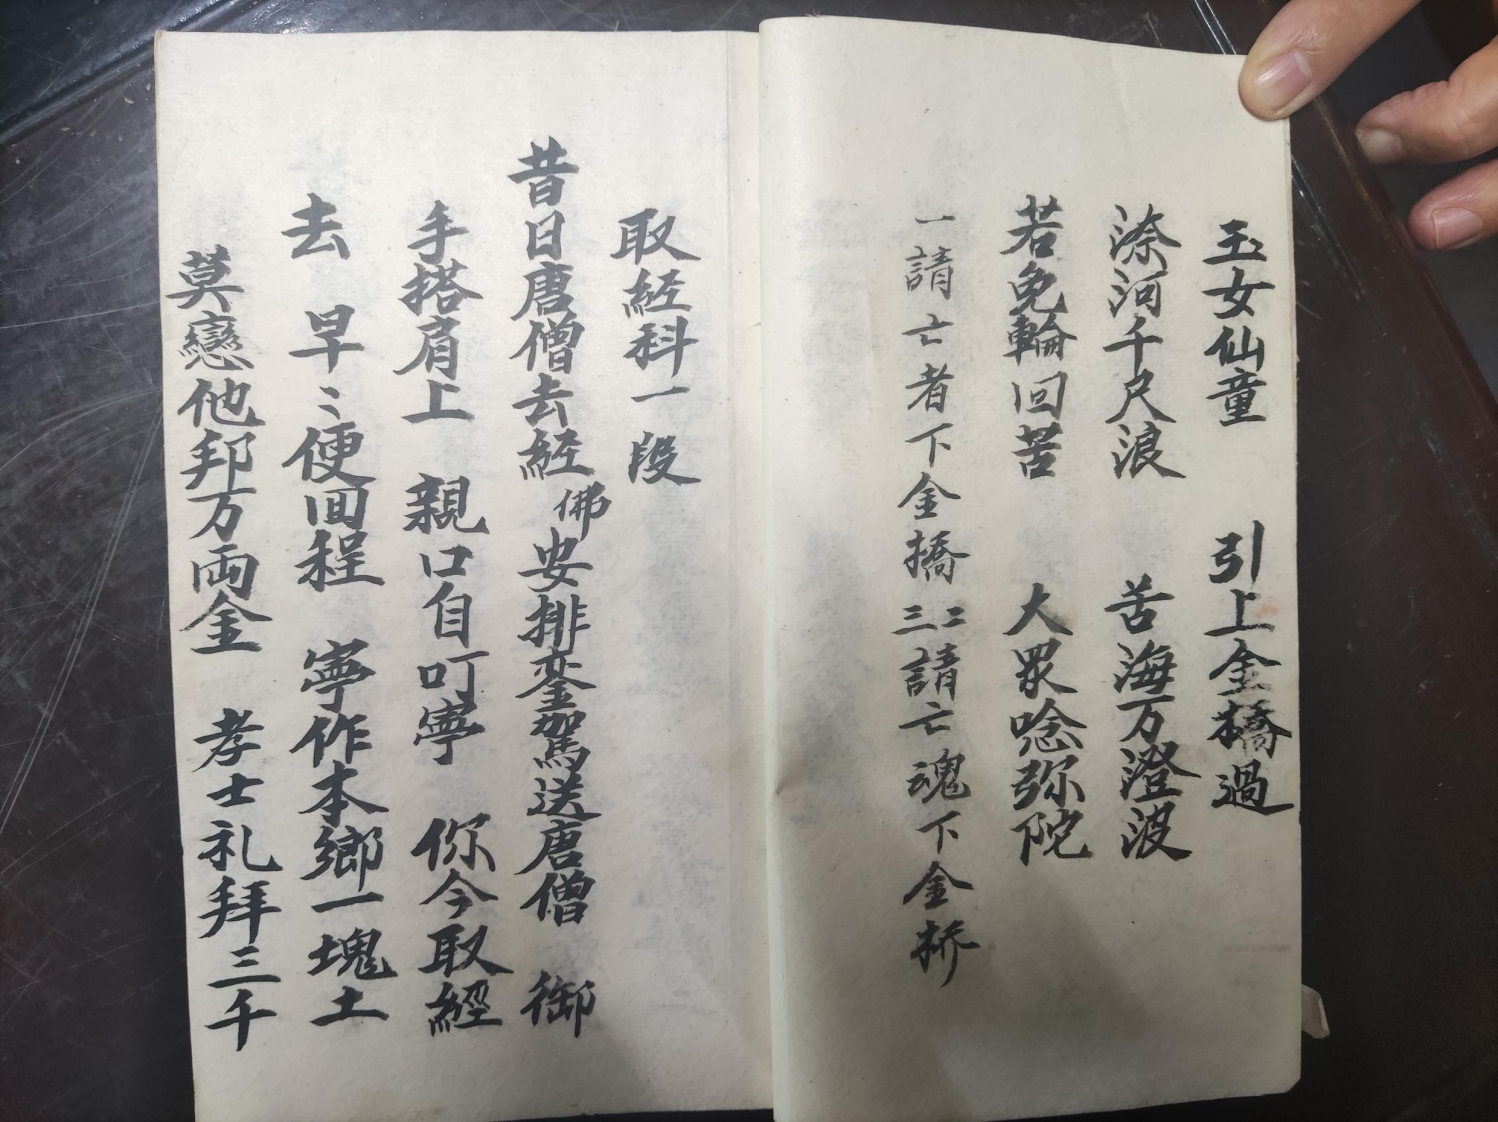 玉女仙童　引上金橋過
渿河千尺浪　苦海万澄波
若免輪回苦　大眾唸弥陀
一請亡者下金橋二三請亡魂下金桥
取經科一段
昔日唐僧去經佛安排銮駕送唐僧　御
手搭肩上　親口自叮寧　你今取經
去　早〻便回程　寧作本鄉一塊土
莫戀他邦万両金　孝士礼拜三千